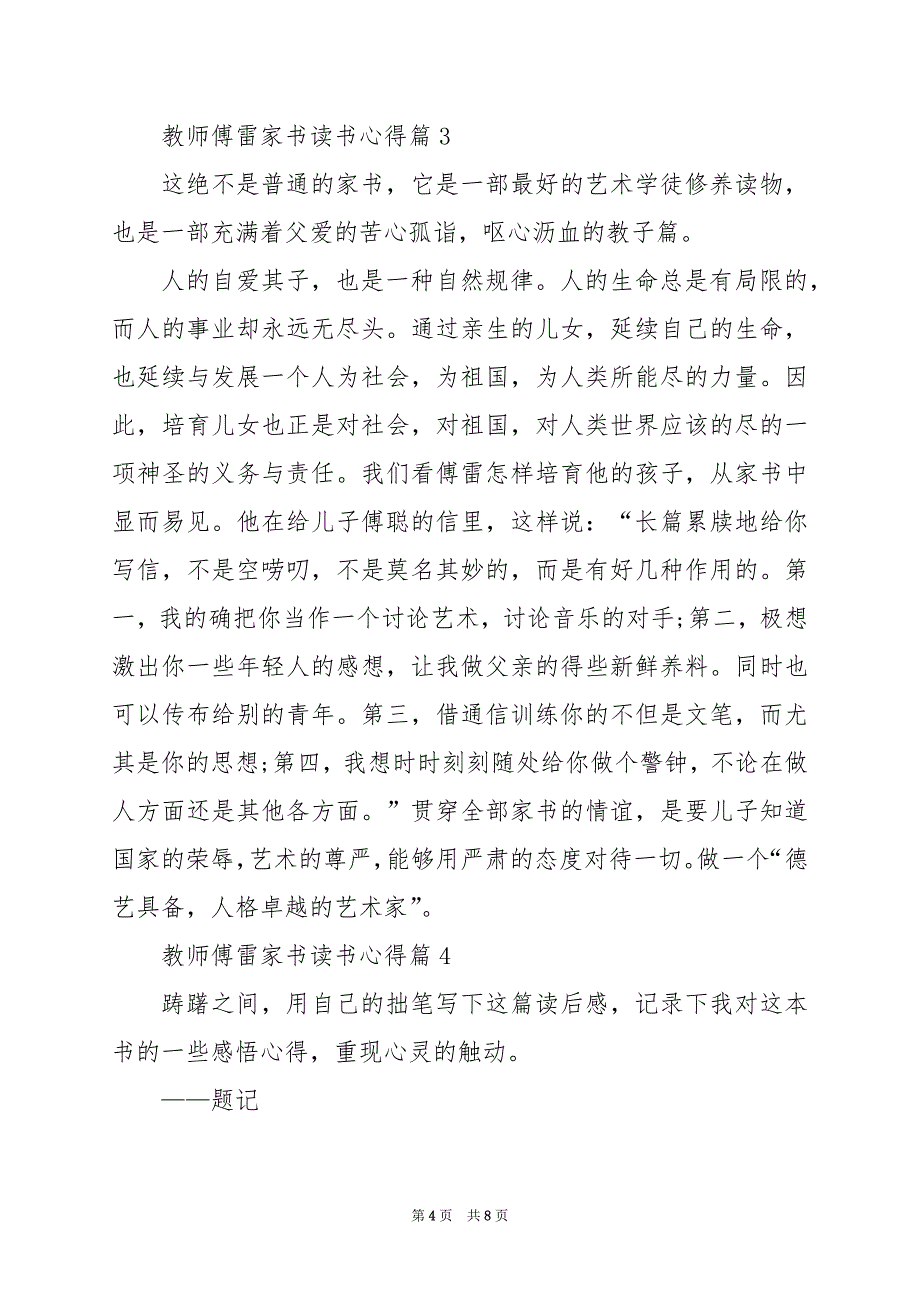 教师傅雷家书读书心得篇 3
这绝不是普通的家书，它是一部最好的艺术学徒修养读物，
也是一部充满着父爱的苦心孤诣，呕心沥血的教子篇。
人的自爱其子，也是一种自然规律。人的生命总是有局限的，
而人的事业却永远无尽头。通过亲生的儿女，延续自己的生命，
也延续与发展一个人为社会，为祖国，为人类所能尽的力量。因
此，培育儿女也正是对社会，对祖国，对人类世界应该的尽的一
项神圣的义务与责任。我们看傅雷怎样培育他的孩子，从家书中
显而易见。他在给儿子傅聪的信里，这样说：“长篇累牍地给你
写信，不是空唠叨，不是莫名其妙的，而是有好几种作用的。第
一，我的确把你当作一个讨论艺术，讨论音乐的对手;第二，极想
激出你一些年轻人的感想，让我做父亲的得些新鲜养料。同时也
可以传布给别的青年。第三，借通信训练你的不但是文笔，而尤
其是你的思想;第四，我想时时刻刻随处给你做个警钟，不论在做
人方面还是其他各方面。”贯穿全部家书的情谊，是要儿子知道
国家的荣辱，艺术的尊严，能够用严肃的态度对待一切。做一个“德
艺具备，人格卓越的艺术家”。
教师傅雷家书读书心得篇 4
踌躇之间，用自己的拙笔写下这篇读后感，记录下我对这本
书的一些感悟心得，重现心灵的触动。
——题记
第 4 页 共 8 页